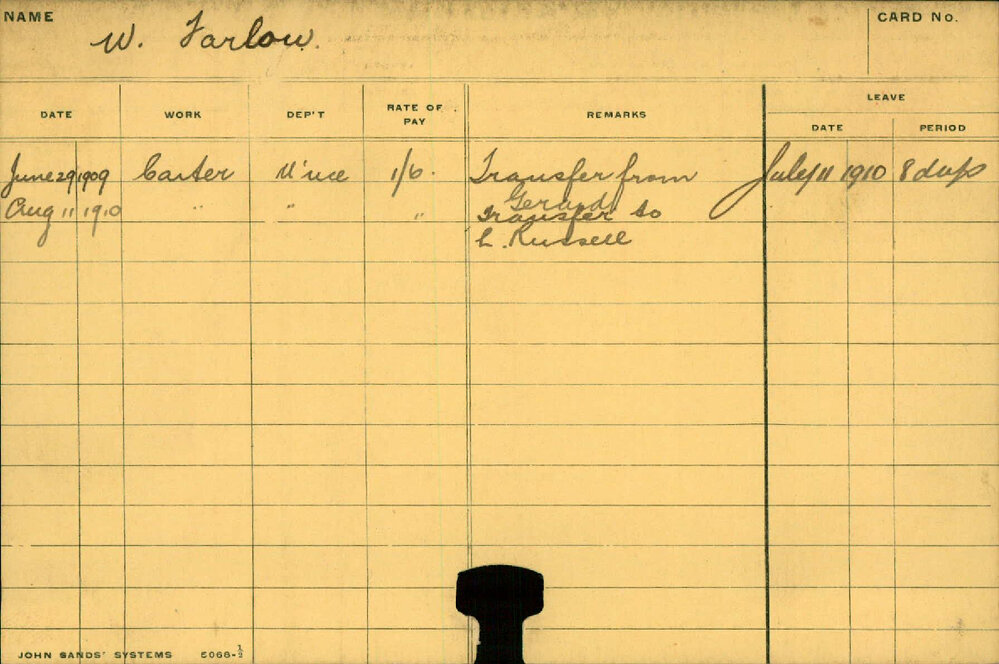 NAME W. Farlow. CARD No.
LEAVE
DATE WORK DEP'T RATE OF PAY REMARKS DATE PERIOD
June 29 1909 Carter M'nce 1/6. Transfer from July 11 1910 8 days
Gerard
Aug 11 1910 " " " Transfer to
L. Russell
JOHN SANDS' SYSTEMS 5068-½